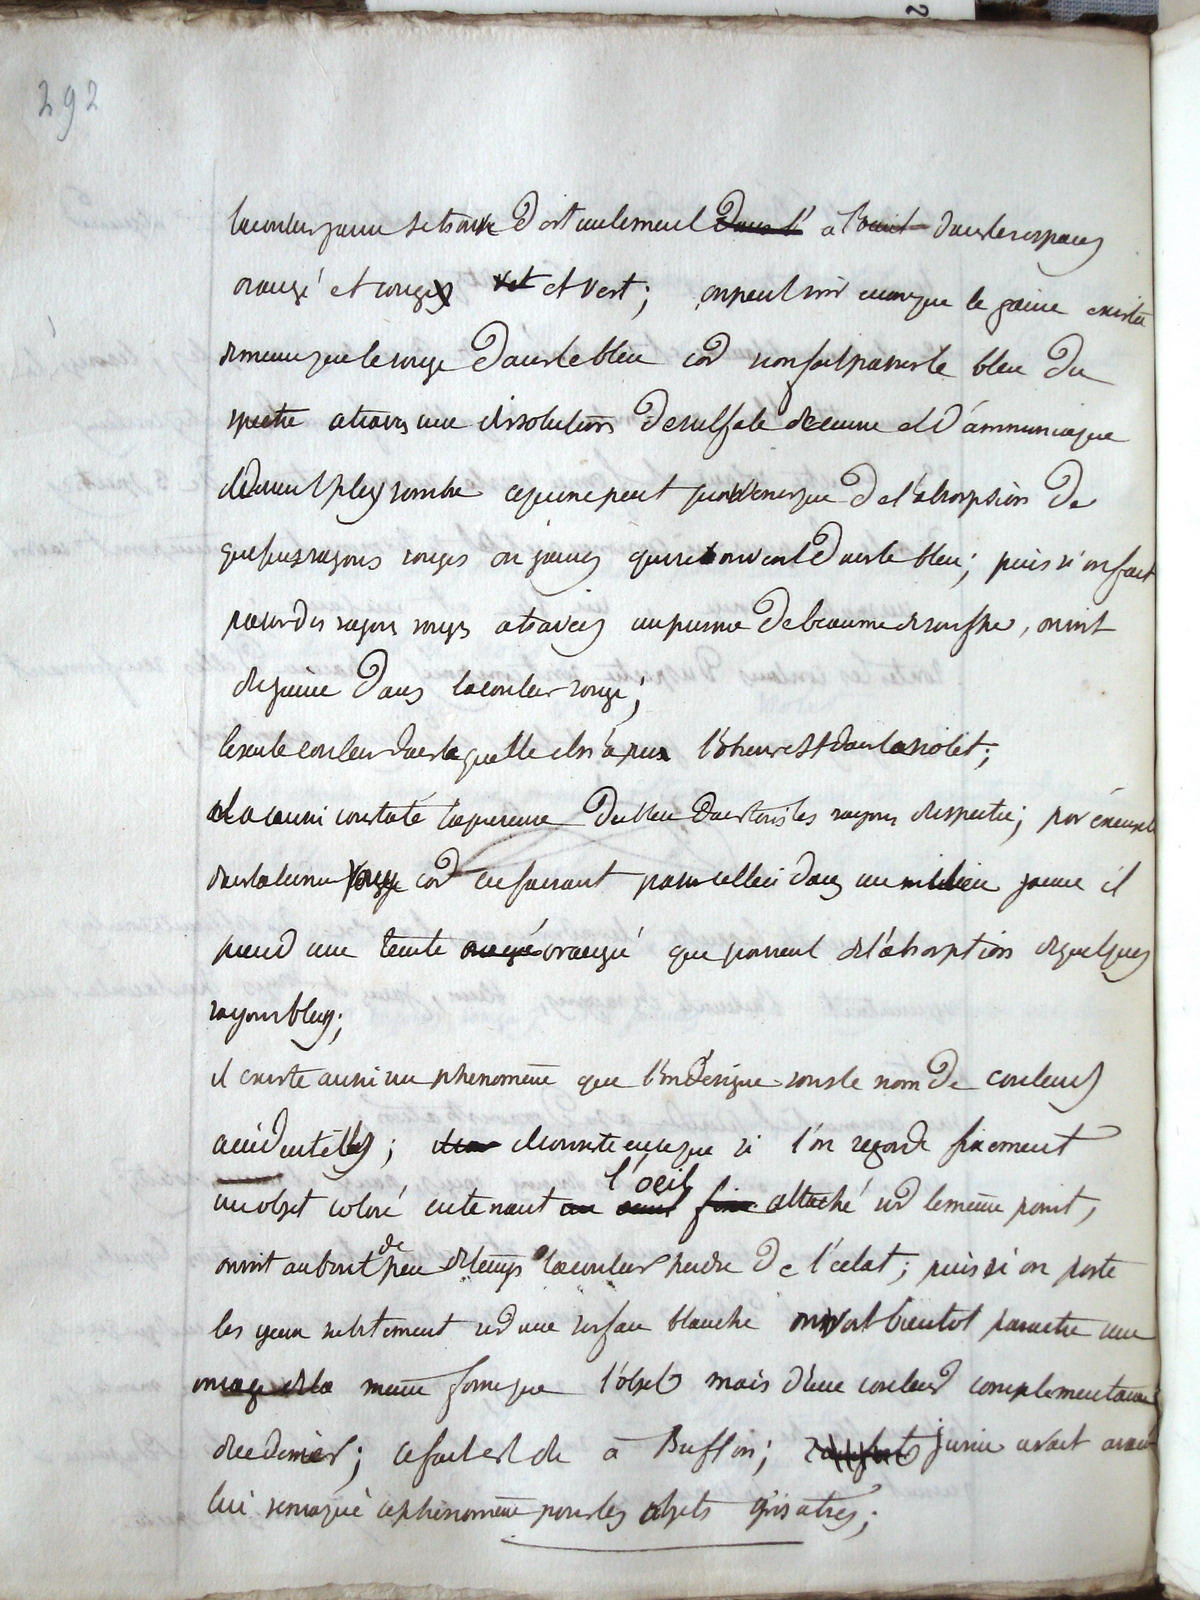 292
la couleur jaune se trouve d'ort seulement ~~dans l'~~ à ~~l'œuil~~ dans les espaces
orangé et rouge ~~vet~~ et vert; on peut voir encore que le jaune existe
de meme que le rouge dans le bleu car si on fait passer le bleu du
spectre a travers une dissolution de sulfate de cuivre et d'ammuniaque
il devient plus sombre ce qui ne peut provenir que de l'absorpsion de
quelques rayons rouges ou jaunes qui se trouvent dans le bleu; puis si on fait
passer des rayons rouges a travers un prisme de beaume de souffre, on voit
du jaune dans la couleur rouge;
la seule couleur dans laquelle il n'a pu l'obtenir est dans la violet;
il a aussi constaté la presence du bleu dans tous les rayons du spectre; par exemple
dans la lumiere rouge car en faisant passer celleci dans un milieu jaune il
prend une teinte ~~orangé~~ orangé qui provient de l'absorption de quelques
rayons bleus;
il existe aussi un phenomène que l'on désigne sous le nom de couleurs
accidentelles; il consiste en ce que si l'on regarde fixement
un objet coloré en tenant l'œil attaché sur le même point,
on voit au bout de peu de temps la couleur perdre de l'éclat; puis si on porte
les yeux subitement sur une surface blanche on voit bientot paraitre une
image de la même forme que l'objet mais d'une couleur complementaire
de ce dernier; ce fait est du à Buffon; jurin avait avant
lui remarqué ce phénomène pour les objets grisatres;